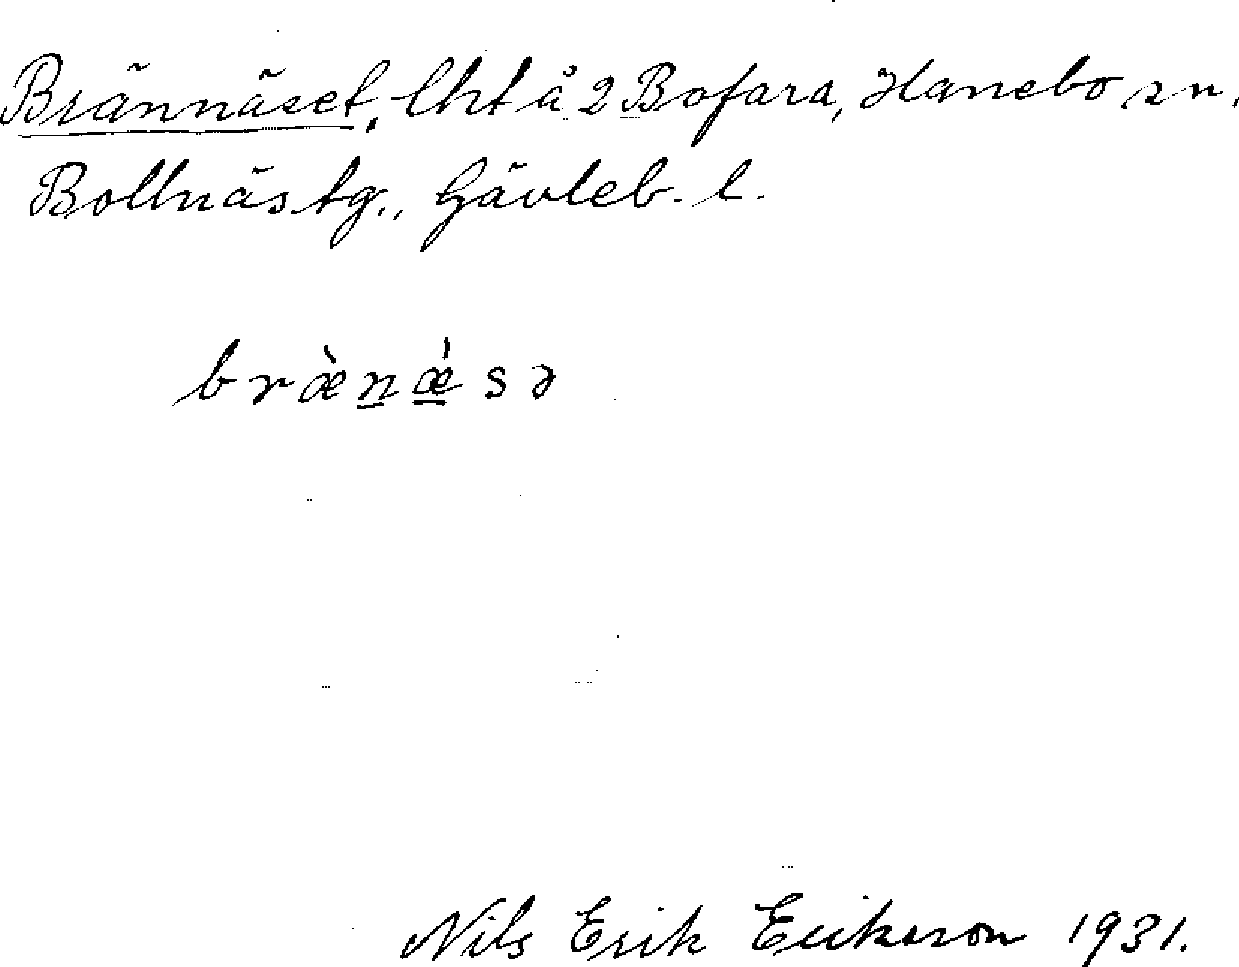 Brännäset, lht å 2 Bofara, Hanebo sn.
Bollnäs tg., Gävleb. l.
bræ̀nǽsə
Nils Erik Erikson 1931.